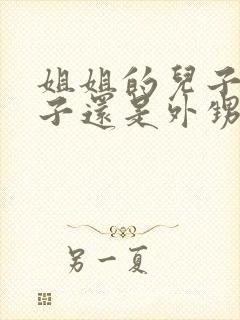 姐姐的兒子
子還是外甥
另一夏